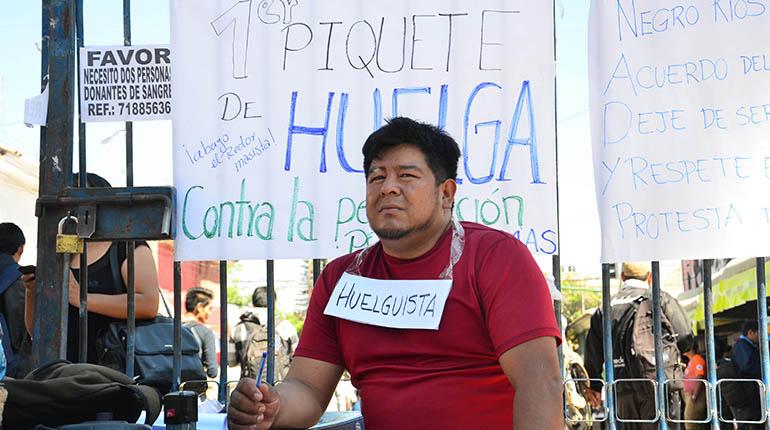 FAVOR
NECESITO DOS PERSONAS
DONANTES DE SANGRE
REF.: 71885636
1er PIQUETE
DE HUELGA
¡abajo
el Rector
masista!
Contra la
MAS
HUELGUISTA
NEGRO RIOS
ACUERDO DEL
DEJE DE SER
Y RESPETE
PROTESTA